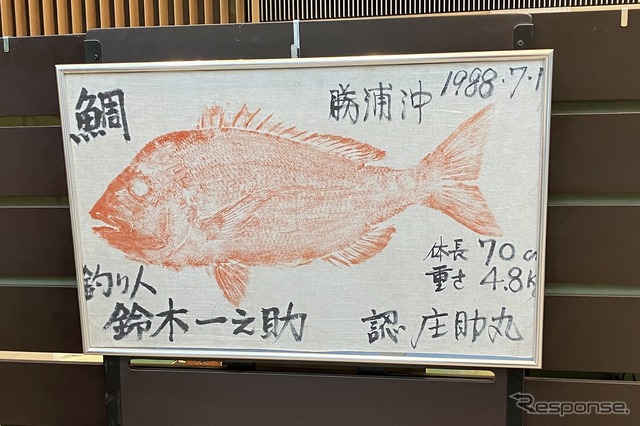 鯛
勝浦沖 1988・7・1
体長 70c
重さ 4.8k
釣り人
鈴木一之助 認 庄助丸
Response.